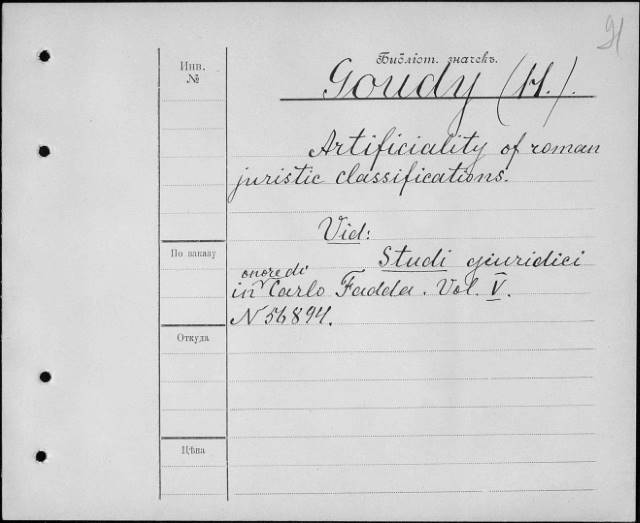 91
Библіот. значекъ.
Инв.
№
Goudy (H.).
Artificiality of roman
juristic classifications.
Vid:
По заказу
Studi giuridici
onore di
in Carlo Fadda. Vol. V.
N 56894.
Откуда
Цѣна